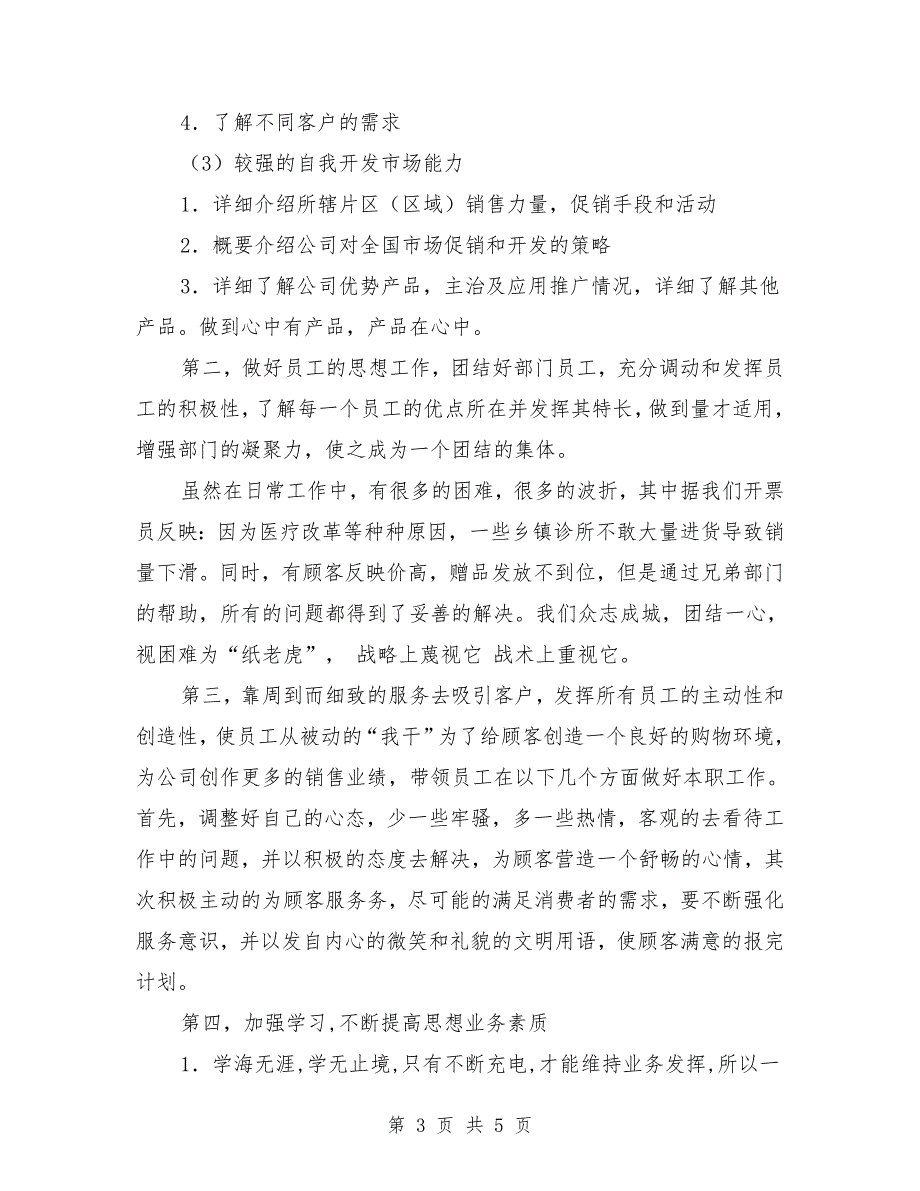 4. 了解不同客户的需求
（3）较强的自我开发市场能力
1. 详细介绍所辖片区（区域）销售力量，促销手段和活动
2. 概要介绍公司对全国市场促销和开发的策略
3. 详细了解公司优势产品，主治及应用推广情况，详细了解其他
产品。做到心中有产品，产品在心中。
第二，做好员工的思想工作，团结好部门员工，充分调动和发挥员
工的积极性，了解每一个员工的优点所在并发挥其特长，做到量才适用，
增强部门的凝聚力，使之成为一个团结的集体。
虽然在日常工作中，有很多的困难，很多的波折，其中据我们开票
员反映：因为医疗改革等种种原因，一些乡镇诊所不敢大量进货导致销
量下滑。同时，有顾客反映价高，赠品发放不到位，但是通过兄弟部门
的帮助，所有的问题都得到了妥善的解决。我们众志成城，团结一心，
视困难为“纸老虎”， 战略上蔑视它 战术上重视它。
第三，靠周到而细致的服务去吸引客户，发挥所有员工的主动性和
创造性，使员工从被动的“我干”为了给顾客创造一个良好的购物环境，
为公司创作更多的销售业绩，带领员工在以下几个方面做好本职工作。
首先，调整好自己的心态，少一些牢骚，多一些热情，客观的去看待工
作中的问题，并以积极的态度去解决，为顾客营造一个舒畅的心情，其
次积极主动的为顾客服务务，尽可能的满足消费者的需求，要不断强化
服务意识，并以发自内心的微笑和礼貌的文明用语，使顾客满意的报完
计划。
第四，加强学习,不断提高思想业务素质
1. 学海无涯,学无止境,只有不断充电,才能维持业务发挥,所以一
第 3 页 共 5 页